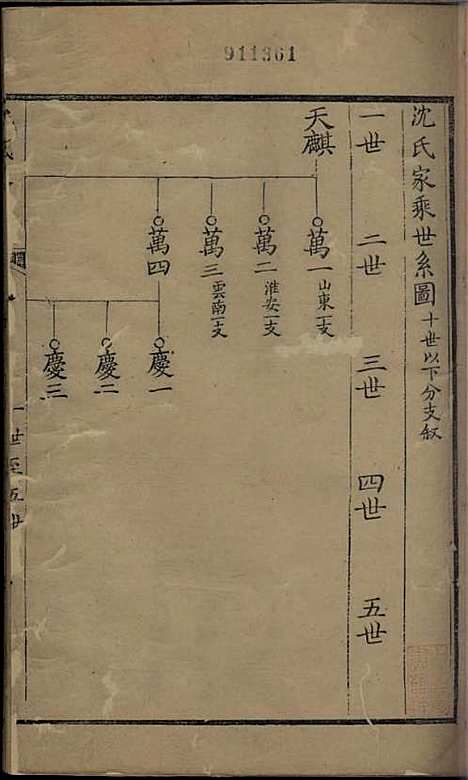 911361
沈氏家乘世系圖 十世以下分支叙
一世 二世 三世 四世 五世
天麒
萬一 山東一支
萬二 淮安一支
萬三 雲南一支
萬四
慶一
慶二
慶三
一世至五世